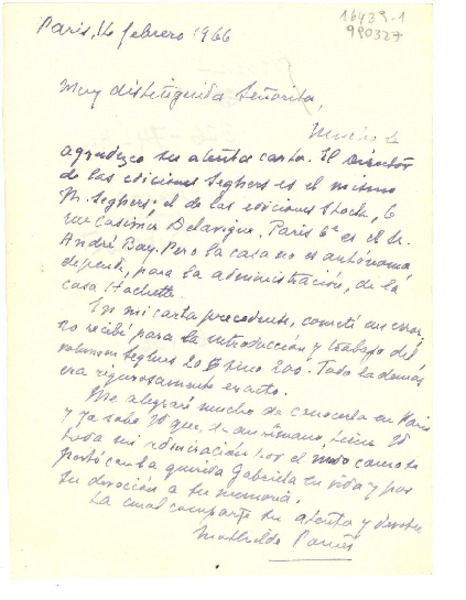 16439-1
990327
Paris, 14 febrero 1966
Muy distinguida Señorita,
Mucho le
agradezco su atenta carta. El Director
de las ediciones Seghers es el mismo
M. Seghers; el de las ediciones Stock, 6
rue Casimir Delavigne. Paris 6e es el Sr.
André Bay. Pero la casa no es autónoma
depende, para la administración, de la
casa Hachette.
En mi carta precedente, cometí un error,
no recibí para la introducción y trabajo del
volumen Seghers 20 sino 200. Todo lo demás
era rigurosamente exacto.
Me alegraré mucho de conocerla en Paris
y ya sabe Vd que, de antemano, tiene Vd
toda mi admiración por el modo como se
portó con la querida Gabriela en vida y por
su devoción a su memoria.
La cual comparte su atenta y devota
Mathilde Pomès